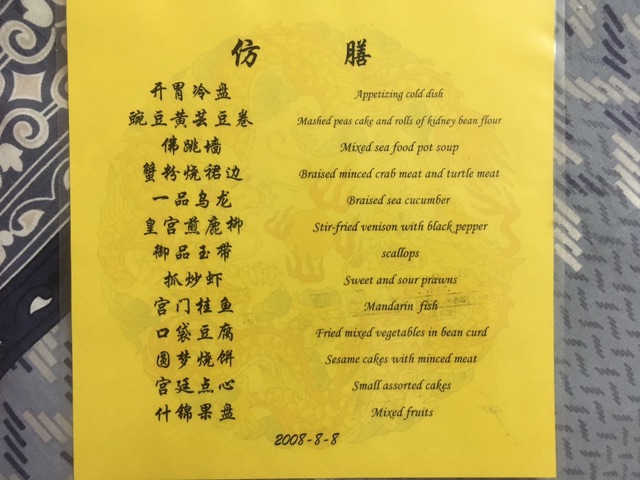 仿 膳
开胃冷盘 Appetizing cold dish
豌豆黄芸豆卷 Mashed peas cake and rolls of kidney bean flour
佛跳墙 Mixed sea food pot soup
蟹粉烧裙边 Braised minced crab meat and turtle meat
一品乌龙 Braised sea cucumber
皇宫煎鹿柳 Stir-fried venison with black pepper
御品玉带 scallops
抓炒虾 Sweet and sour prawns
宫门桂鱼 Mandarin fish
口袋豆腐 Fried mixed vegetables in bean curd
圆梦烧饼 Sesame cakes with minced meat
宫廷点心 Small assorted cakes
什锦果盘 Mixed fruits
2008-8-8